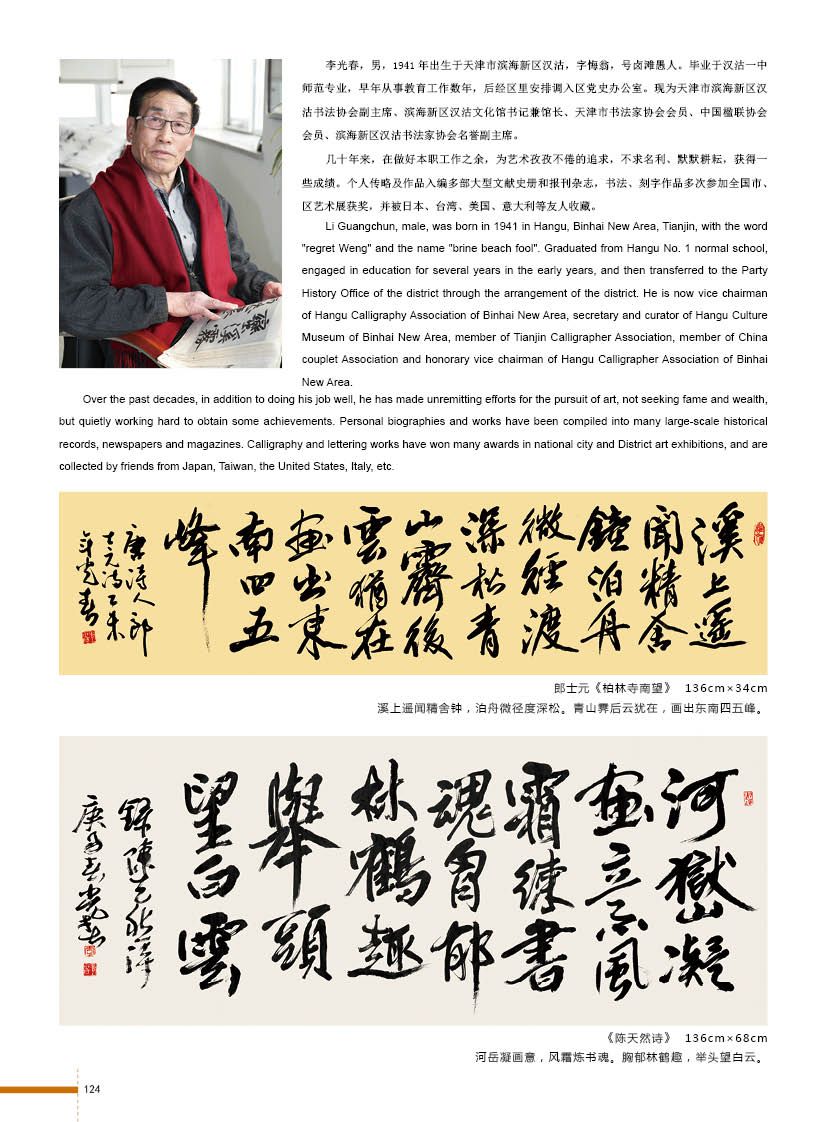 李光春，男，1941 年出生于天津市滨海新区汉沽，字悔翁，号卤滩愚人。毕业于汉沽一中
师范专业，早年从事教育工作数年，后经区里安排调入区党史办公室。现为天津市滨海新区汉
沽书法协会副主席、滨海新区汉沽文化馆书记兼馆长、天津市书法家协会会员、中国楹联协会
会员、滨海新区汉沽书法家协会名誉副主席。
几十年来，在做好本职工作之余，为艺术孜孜不倦的追求，不求名利、默默耕耘，获得一
些成绩。个人传略及作品入编多部大型文献史册和报刊杂志，书法、刻字作品多次参加全国市、
区艺术展获奖，并被日本、台湾、美国、意大利等友人收藏。
Li Guangchun, male, was born in 1941 in Hangu, Binhai New Area, Tianjin, with the word
"regret Weng" and the name "brine beach fool". Graduated from Hangu No. 1 normal school,
engaged in education for several years in the early years, and then transferred to the Party
History Office of the district through the arrangement of the district. He is now vice chairman
of Hangu Calligraphy Association of Binhai New Area, secretary and curator of Hangu Culture
Museum of Binhai New Area, member of Tianjin Calligrapher Association, member of China
couplet Association and honorary vice chairman of Hangu Calligrapher Association of Binhai
New Area.
Over the past decades, in addition to doing his job well, he has made unremitting efforts for the pursuit of art, not seeking fame and wealth,
but quietly working hard to obtain some achievements. Personal biographies and works have been compiled into many large-scale historical
records, newspapers and magazines. Calligraphy and lettering works have won many awards in national city and District art exhibitions, and are
collected by friends from Japan, Taiwan, the United States, Italy, etc.
溪上遥
闻精舍
鐘泊舟
微徑渡
深松青
山霽後
雲猶在
画出東
南四五
峰
唐诗人郎
士元詩乙未
年光春
郎士元《柏林寺南望》 136cm×34cm
溪上遥闻精舍钟，泊舟微径度深松。青山霁后云犹在，画出东南四五峰。
河嶽凝
画意風
霜練書
魂胷郁
林鶴趣
舉頭
望白雲
錄陳天然詩
庚子春光春
《陈天然诗》 136cm×68cm
河岳凝画意，风霜炼书魂。胸郁林鹤趣，举头望白云。
124